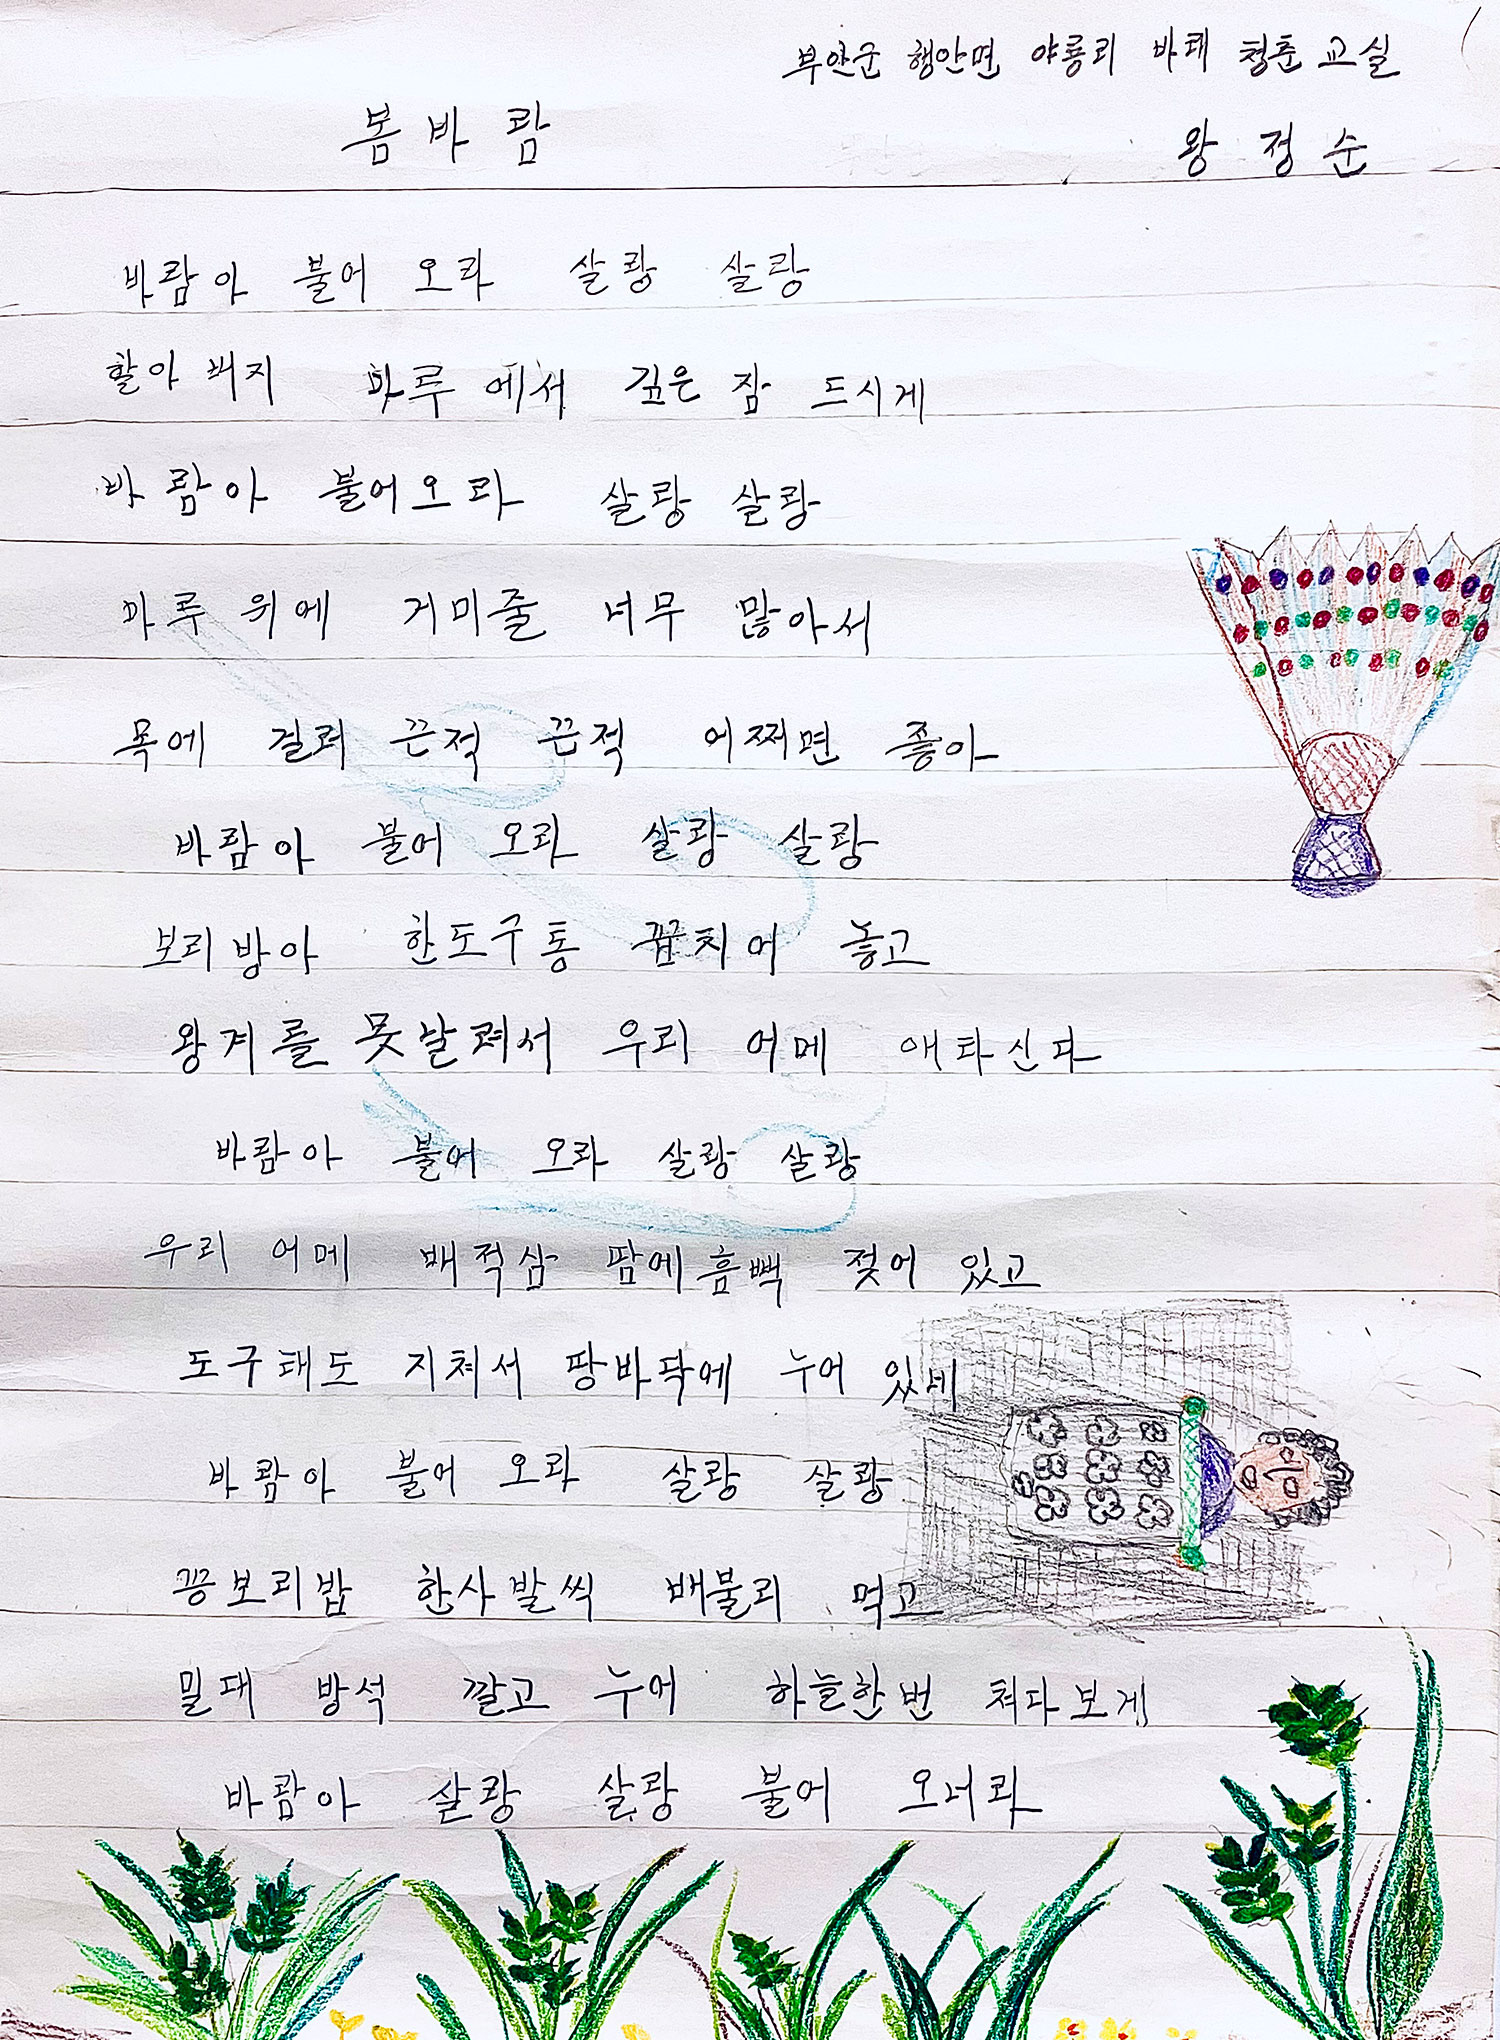 부안군 행안면 야룡리 바래 청춘 교실
봄바람
왕정순
바람아 불어 오라 살랑 살랑
할아버지 마루에서 깊은 잠 드시게
바람아 불어오라 살랑 살랑
마루 위에 거미줄 너무 많아서
목에 걸려 끈적 끈적 어쩌면 좋아
바람아 불어 오라 살랑 살랑
보리방아 한도구통 끌치어 놓고
왕계를 못날려서 우리 어메 애타신다
바람아 불어 오라 살랑 살랑
우리 어메 배적삼 땀에 흠뻑 젖어 있고
도구대도 지쳐서 땅바닥에 누어 있네
바람아 불어 오라 살랑 살랑
꽁보리밥 한사발씩 배불리 먹고
밀대 방석 깔고 누어 하늘한번 쳐다보게
바람아 살랑 살랑 불어 오너라